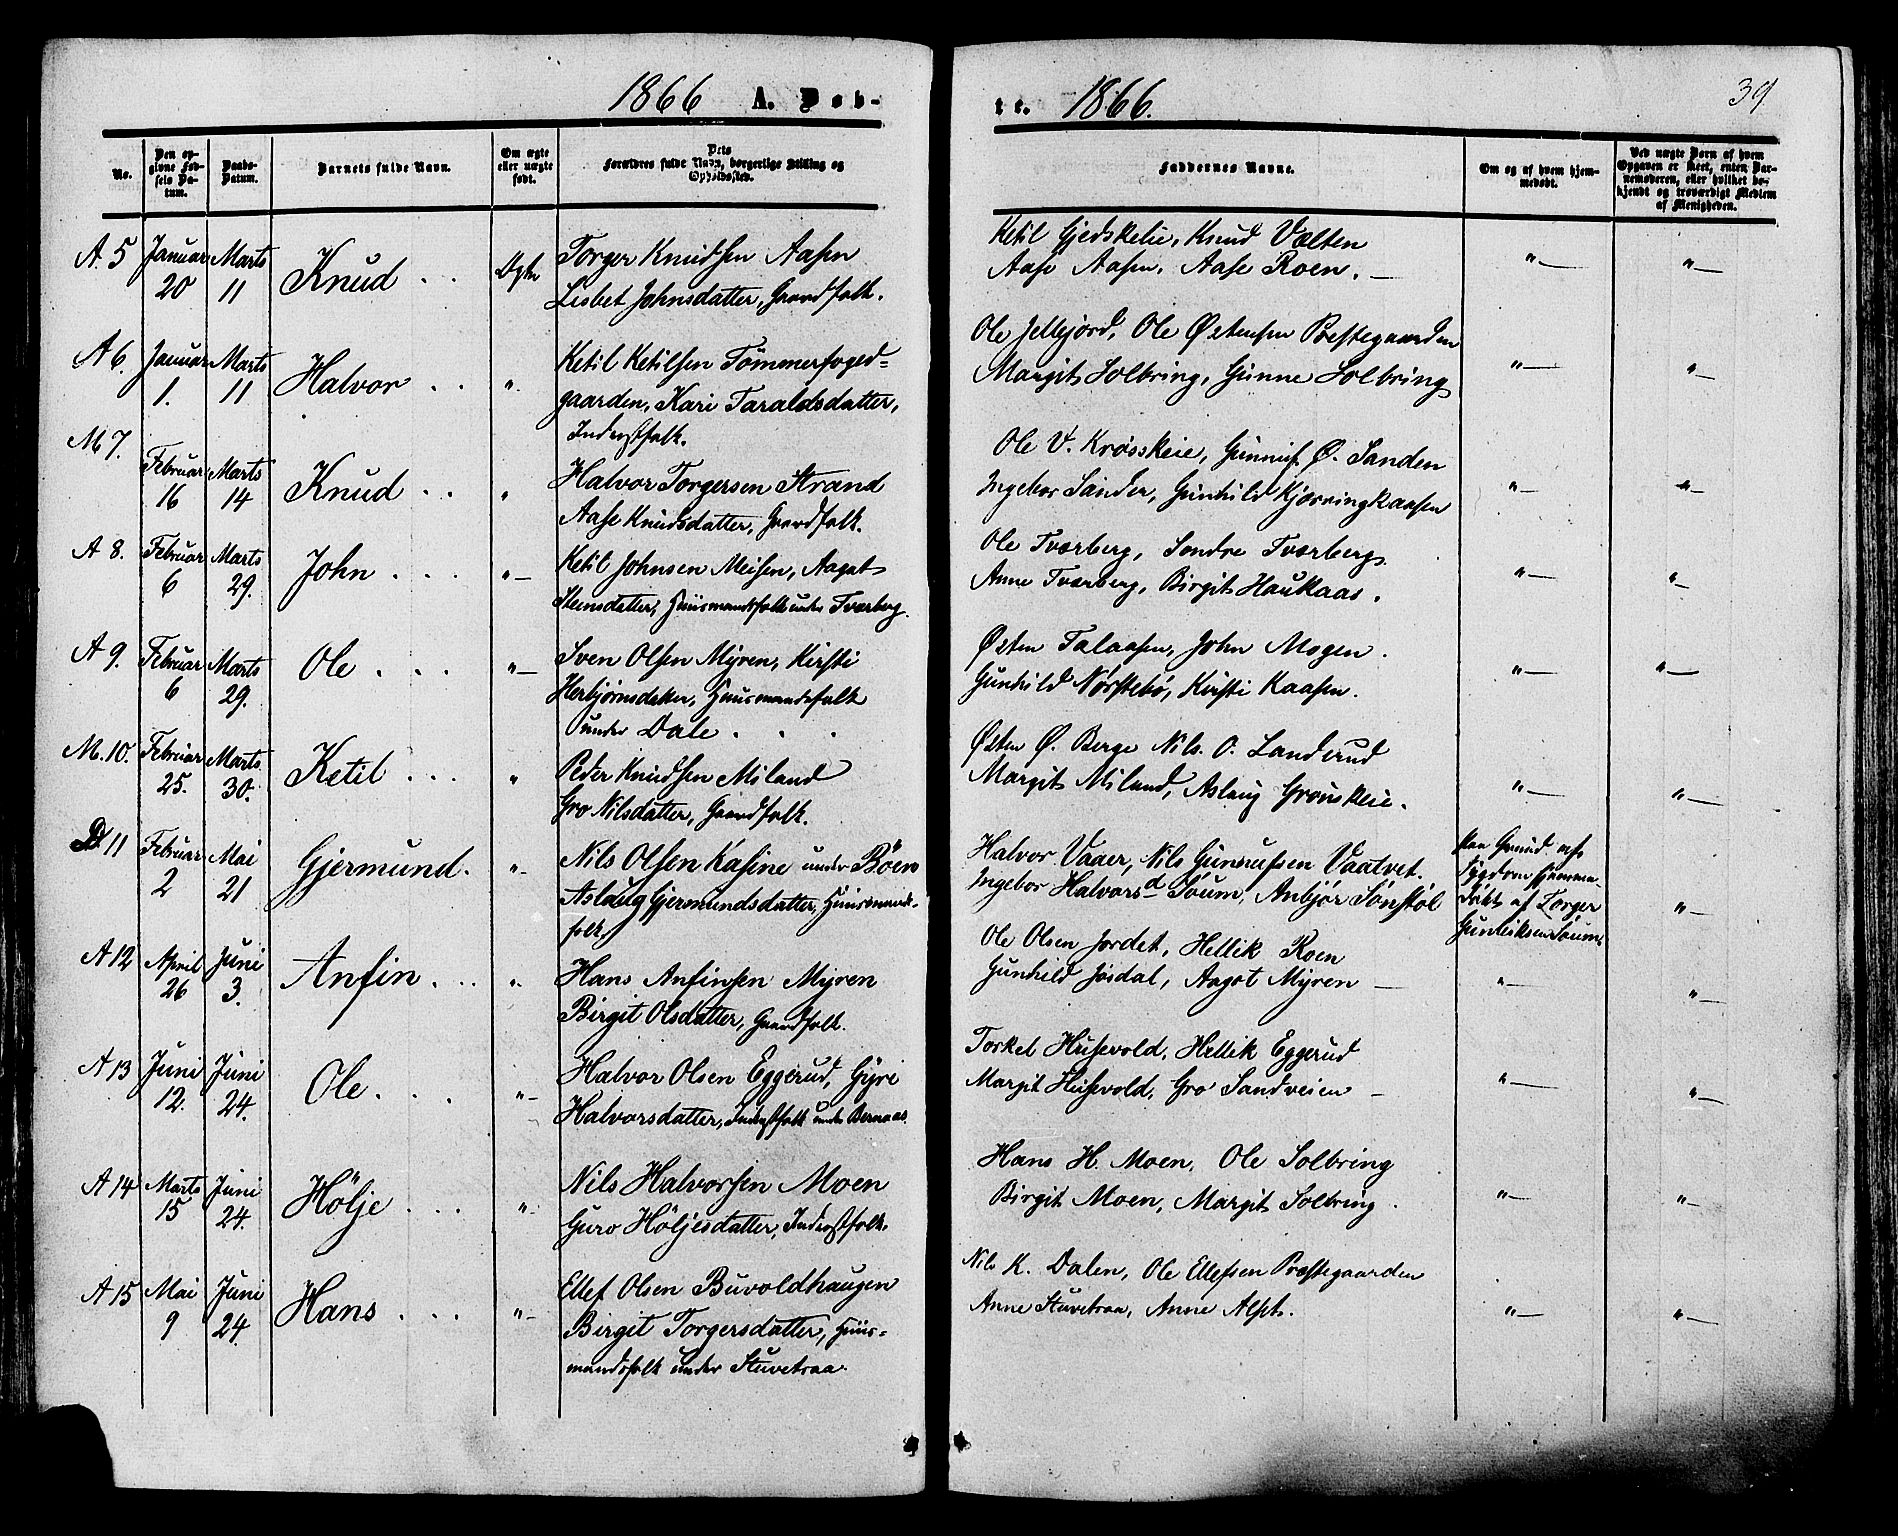 1866 A. Døb-
No.
Den opgivne Fødsels Datum.
Daabs-Datum.
Barnets fulde Navn.
Om ægte eller uægte født.
Dets Forældres fulde Navn, borgerlige Stilling og Opholdssted.
A. 5 Januar 20 Marts 11 Knud . . Ægte Torger Knudsen Aasen
Lisbet Johnsdatter, Gaardfolk.
A 6. Januar 1. Marts 11 Halvor . . " Ketil Ketilsen Tömmerfoged-
gaarden, Kari Taraldsdatter,
Inderstfolk.
M 7. Februar 16 Marts 14 Knud . . " Halvor Torgersen Strand
Aase Knudsdatter, Gaardfolk.
A 8. Februar 6 Marts 29. John . . . "— Ketil Johnsen Meisen, Aagot
Steinsdatter, Huusmandsfolk under Tværberg.
A 9. Februar 6 Marts 29. Ole . . . "— Sven Olsen Myren, Kirsti
Herbjörnsdatter, Huusmandsfolk
under Dale . . .
M. 10. Februar 25. Marts 30. Ketil . . . " Peder Knudsen Miland
Gro Nilsdatter, Gaardfolk.
D 11 Februar 2 Mai 21 Gjermund. "- Nils Olsen Kasine under Böen
Aslaug Gjermundsdatter, Huusmands-
folk
A 12 April 26 Juni 3. Anfin . . . ". Hans Anfinsen Myren
Birgit Olsdatter, Gaardfolk.
A 13 Juni 12. Juni 24. Ole . . . "- Halvor Olsen Eggerud, Gyri
Halvorsdatter, Inderstfolk under Bernaas.
A 14 Marts 15 Juni 24. Hölje . . . "- Nils Halvorsen Moen
Guro Höljesdatter, Inderstfolk.
A 15 Mai 9 Juni 24. Hans . . . "- Ellef Olsen Buvoldhaugen
Birgit Torgersdatter, Huus-
mandsfolk under Stuvetraa.
te. 1866. 39
Faddernes Navne.
Om og af hvem hjemmedøbt.
Ved uægte Børn af hvem Opgaven er skeet, enten Barnemoderen, eller hvilket bekjendt og troværdigt Medlem af Menigheden.
Ketil Gjedskelie, Knud Vælten
Aase Aasen, Aase Roen. — "— "—
Ole Jellejord, Ole Østensen Prestegaarden
Margit Solbring, Gunne Solbring "— "—
Ole V. Krosskeie, Gunnuf Ø. Sanden
Ingebor Sander, Gunhild Kjørningkaasen "— "—
Ole Tværberg, Sondre Tværberg.
Anne Tværberg, Birgit Haukaas. "— "—
Østen Talaasen, John Mogen.
Gunhild Nørstebö, Kirsti Kaasen. "— "—
Østen Ø. Berge Nils O. Landerud
Margit Miland, Aslaug Grauskeie. "— "—
Halvor Vaaer, Nils Gunnufsen Vaatvet.
Ingebor Halvorsd Söum, Anbjør Sönstöl "—
paa Grund af
Sygdom hjemme-
døbt af Torger
Gunleiksen Söum.
Ole Olsen Jordet, Hellik Roen
Gunhild Jösdal, Aagot Myren — "— "—
Torkel Husevold, Hellik Eggerud
Margit Husevold, Gro Sandveien — "— "—
Hans H. Moen, Ole Solbring
Birgit Moen, Margit Solbring. "— "—
Nils K. Dalen, Ole Ellefsen Præstegaarden
Anne Stuvetraa, Anne Alpt. "— "—